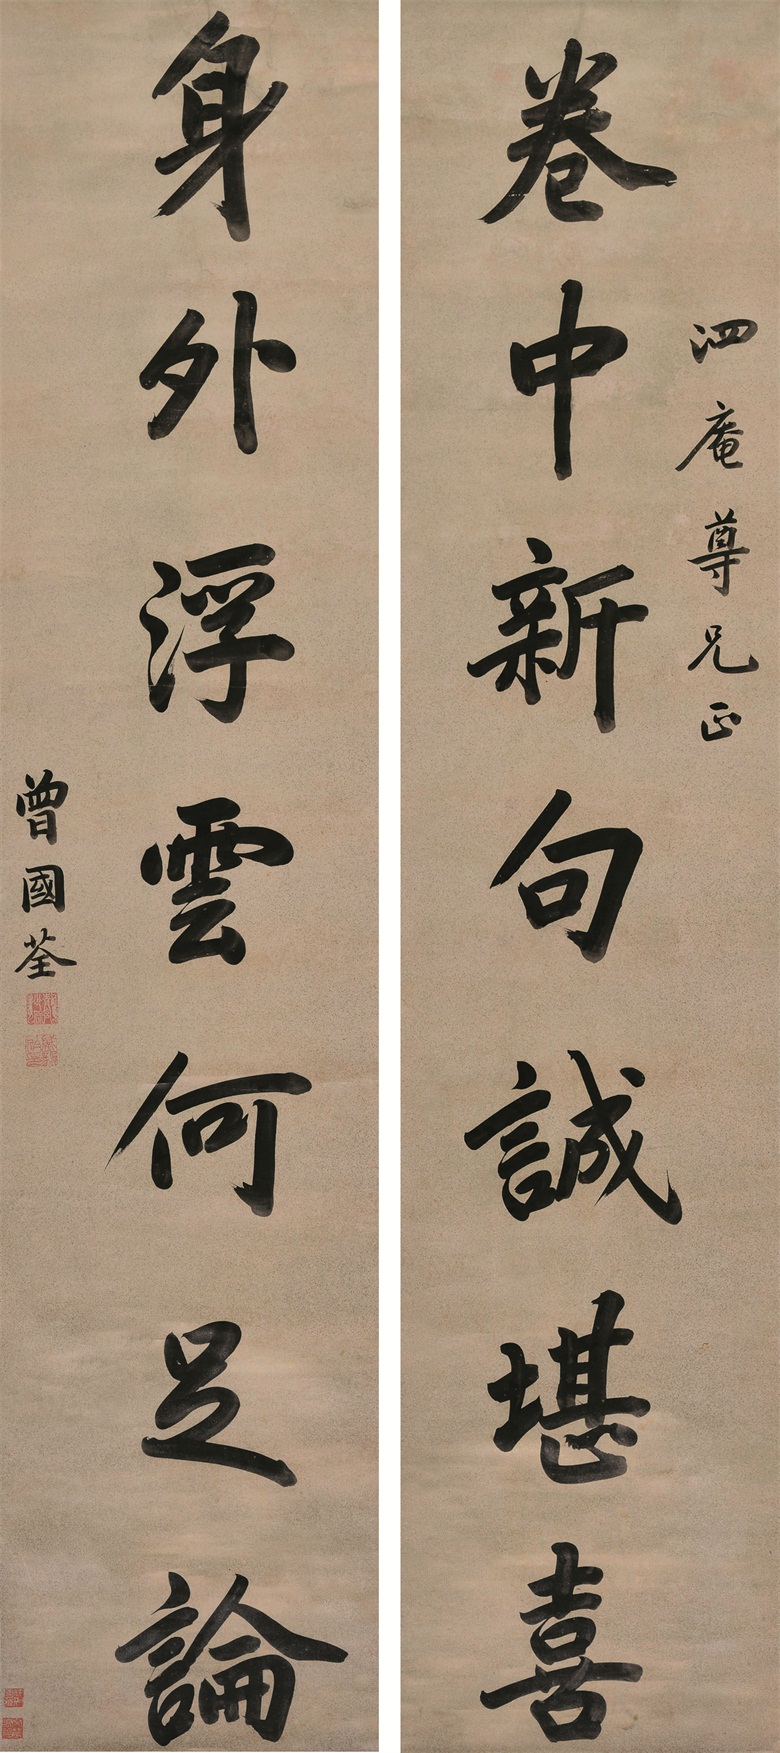 泗庵尊兄正
卷中新句誠堪喜
身外浮雲何足論
曾國荃